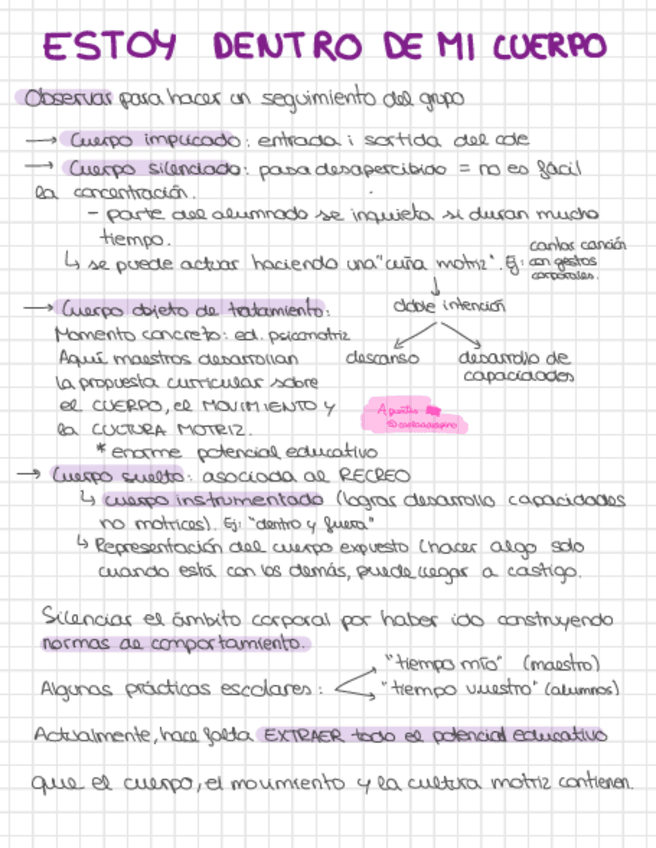 ESTOY DENTRO DE MI CUERPO
Observar para hacer un seguimiento del grupo
→ Cuerpo implicado: entrada i sortida del cole
→ Cuerpo silenciado: pasa desapercibido = no es fácil
la concentración.
- parte del alumnado se inquieta si duran mucho
tiempo.
↳ se puede actuar haciendo una "cuña motriz". Ej: cantar canción
con gestos
corporales.
↓
doble intención
descanso
desarrollo de
capacidades
→ Cuerpo objeto de tratamiento:
Momento concreto: ed. psicomotriz
Aquí maestros desarrollan
la propuesta curricular sobre
el CUERPO, el MOVIMIENTO y
la CULTURA MOTRIZ.
* enorme potencial educativo
Apuntes
→ Cuerpo suelto: asociada al RECREO
↳ cuerpo instrumentado (lograr desarrollo capacidades
no motrices). Ej: "dentro y fuera"
↳ Representación del cuerpo expuesto (hacer algo solo
cuando está con los demás, puede llegar a castigo.
Silenciar el ámbito corporal por haber ido construyendo
normas de comportamiento.
Algunas prácticas escolares:
"tiempo mío" (maestro)
"tiempo vuestro" (alumnos)
Actualmente, hace falta EXTRAER todo el potencial educativo
que el cuerpo, el movimiento y la cultura motriz contienen.